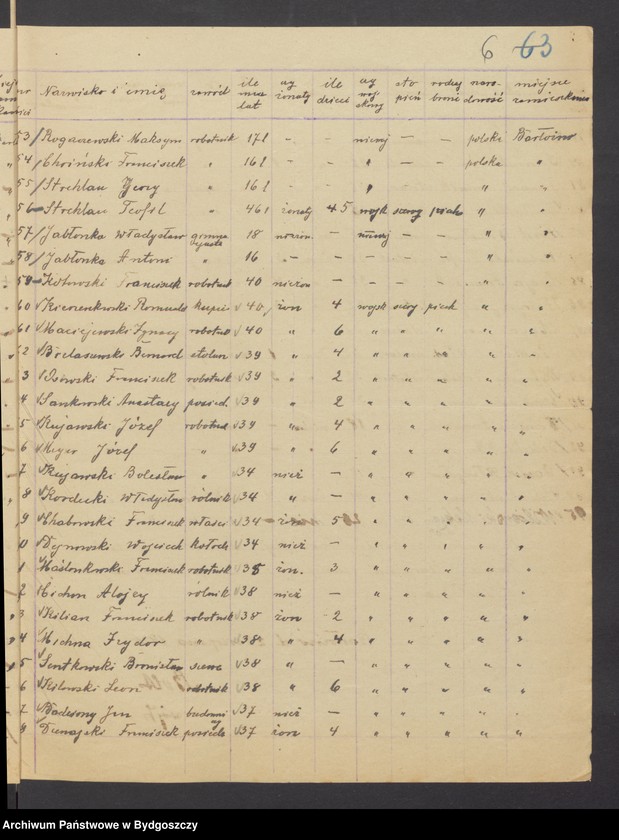 6 63
Nazwisko i imię zawód ile ma lat czy żonaty ile dzieci czy wojskowy stopień rodzaj broni narodowość miejsce zamieszkania
53 Rogaczewski Maksym robotnik 17 l - - niewoj - - polska Bartoino
54 Choiński Franciszek " 16 l - - " - - polska "
55 Strehlau Jerzy " 16 l - - " - - " "
56 Strehlau Teofil " 46 l żonaty 4 5 wojsk szereg piech " "
57 Jabłonka Władysław 18 niewoj - - " "
58 Jabłonka Antoni " 16 - - - - - " "
59 Kotowski Franciszek robotnik 40 nieżon - - - - " "
60 Romuald kupiec 40 żon 4 wojsk szer piech " "
61 Maciejewski Ignacy robotnik 40 " 6 " " " " "
62 Bernard stolarz 39 " 4 " " " " "
3 Franciszek robotnik 39 " 2 " " " " "
4 Sankowski Anastazy posied. 39 " 2 " " " " "
5 Kujawski Józef robotnik 39 " 4 " " " " "
6 Meyer Józef " 39 " 6 " " " " "
7 Kujawski Bolesław " 34 nież - " " " " "
8 Kordecki Władysław rolnik 34 " - " " " " "
9 Chabowski Franciszek właści 34 żon 5 " " " " "
0 Wojciech kołodz 34 nież - " " " " "
1 Franciszek robotnik 38 żon. 3 " " " " "
2 Cichon Alojzy rolnik 38 nież - " " " " "
3 Kilian Franciszek robotnik 38 żon 2 " " " " "
4 Michna Izydor " 38 " 4 " " " " "
5 Sentkowski Bronisław szewc 38 " - " " " " "
6 Leon robotnik 38 " 6 " " " " "
7 Jan 37 nież - " " " " "
8 Franciszek posiedz 37 żon 4 " " " " "
Archiwum Państwowe w Bydgoszczy